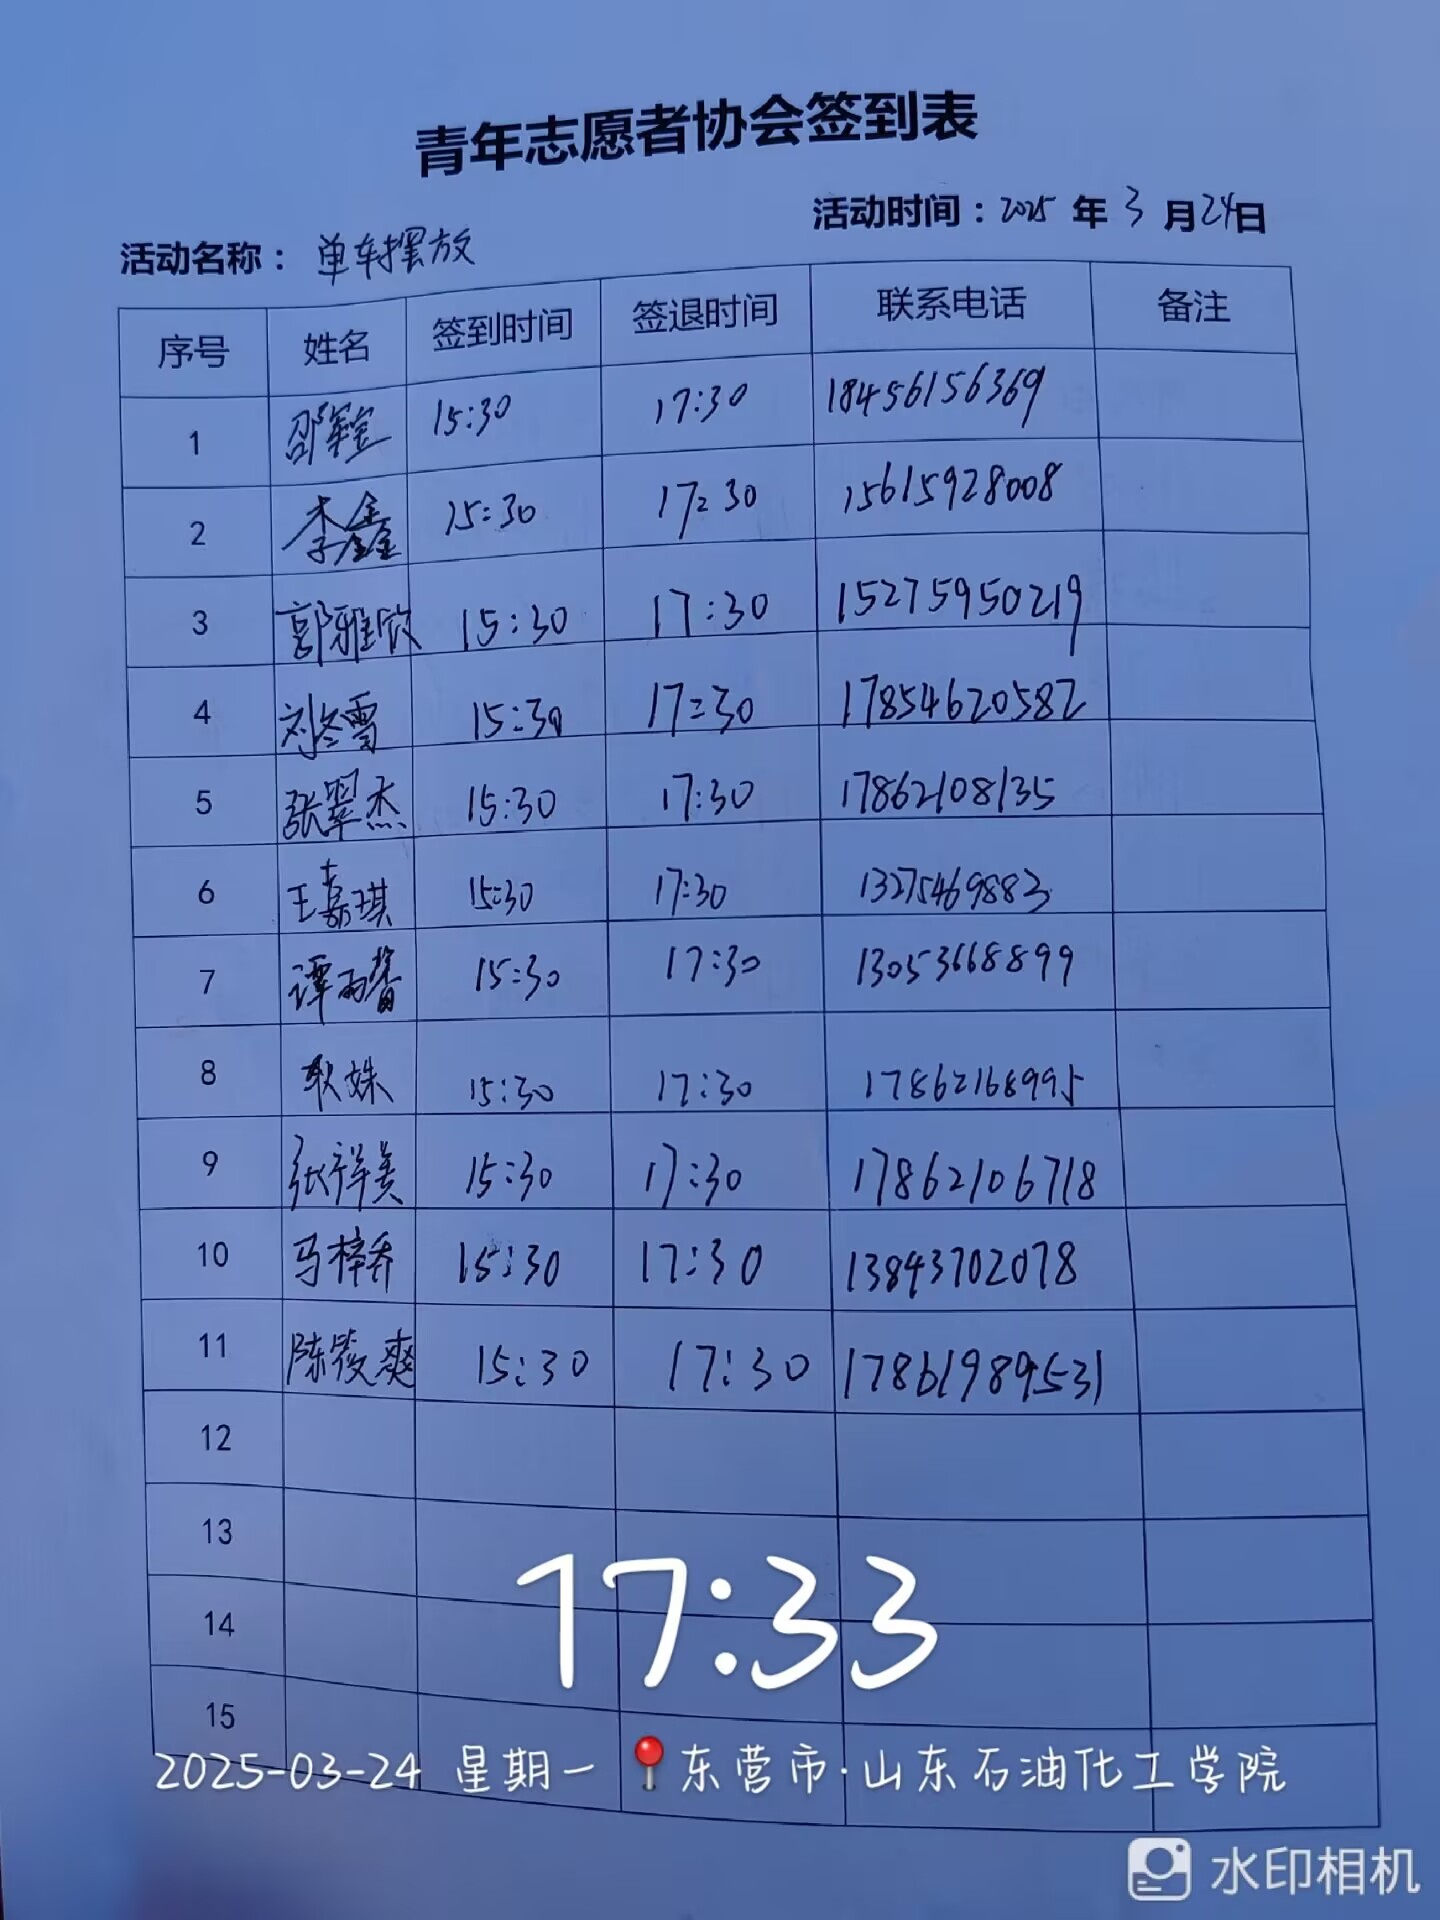 青年志愿者协会签到表
活动时间：2025 年 3 月 24日
活动名称： 单车摆放
序号 姓名 签到时间 签退时间 联系电话 备注
1 15:30 17:30 18456156369
2 李鑫 15:30 17:30 15615928008
3 郭雅欣 15:30 17:30 15275950219
4 刘冬雪 15:30 17:30 17854620582
5 张翠杰 15:30 17:30 17862108135
6 王嘉琪 15:30 17:30 13275469883
7 谭雨馨 15:30 17:30 13053668899
8 耿姝 15:30 17:30 17862168995
9 张祥美 15:30 17:30 17862106718
10 马梓乔 15:30 17:30 13843702078
11 陈筱爽 15:30 17:30 17861989531
12
13
14
15
17:33
2025-03-24 星期一 东营市·山东石油化工学院
水印相机